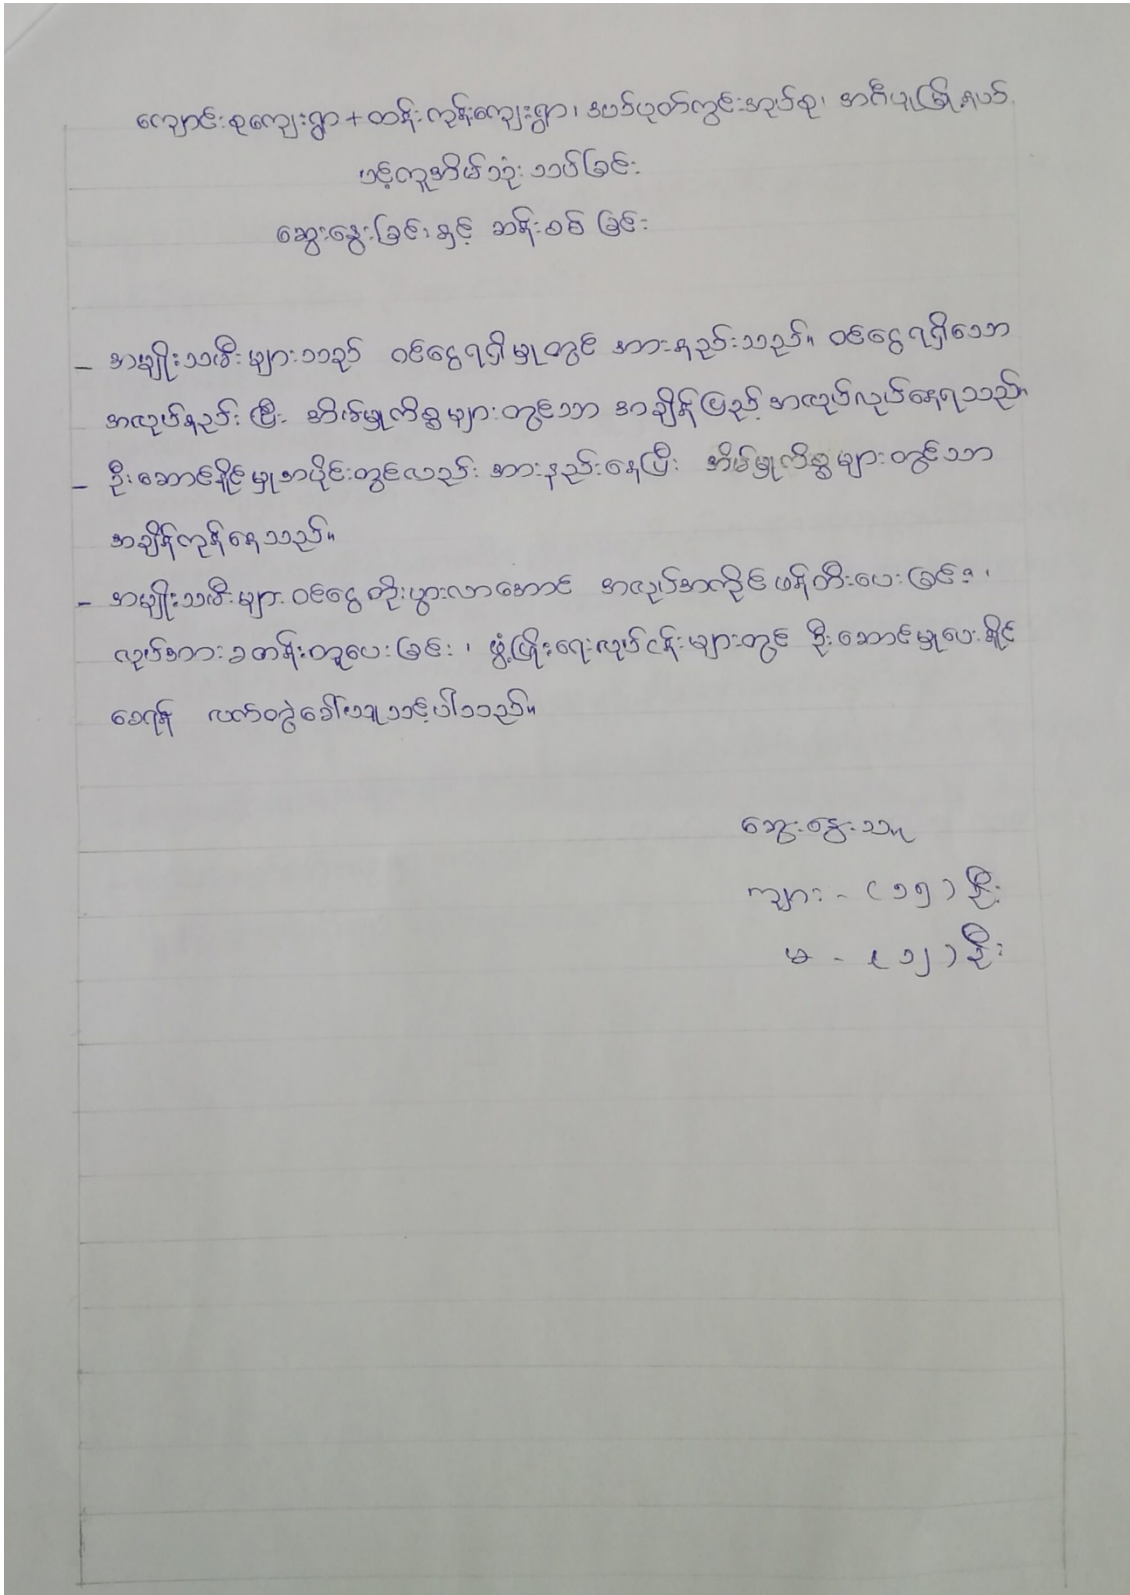 ကျောင်းစုကျေးရွာ + ထန်းကုန်းကျေးရွာ၊ ဒယင်ပုတ်ကွင်းအုပ်စု၊ အင်္ဂပူမြို့နယ်
ပင့်ကူအိမ်သုံးသပ်ခြင်း
ဆွေးနွေးခြင်းနှင့် ဆန်းစစ်ခြင်း
- အမျိုးသမီးများသည် ဝင်ငွေရရှိမှုတွင် အားနည်းသည်။ ဝင်ငွေရရှိသော
အလုပ်နည်းပြီး အိမ်မှုကိစ္စများတွင်သာ အချိန်ပြည့်အလုပ်လုပ်နေရသည်။
- ဦးဆောင်နိုင်မှုအပိုင်းတွင်လည်း အားနည်းနေပြီး အိမ်မှုကိစ္စများတွင်သာ
အချိန်ကုန်နေသည်။
- အမျိုးသမီးများ ဝင်ငွေတိုးပွားလာအောင် အလုပ်အကိုင်ဖန်တီးပေးခြင်း၊
လုပ်အားခတန်းတူပေးခြင်း၊ ဖွံ့ဖြိုးရေးလုပ်ငန်းများတွင် ဦးဆောင်မှုပေးနိုင်
စေရန် လက်တွဲခေါ်ယူသင့်ပါသည်။
ဆွေးနွေးသူ
ကျား - (၁၅) ဦး
မ - (၁၂) ဦး